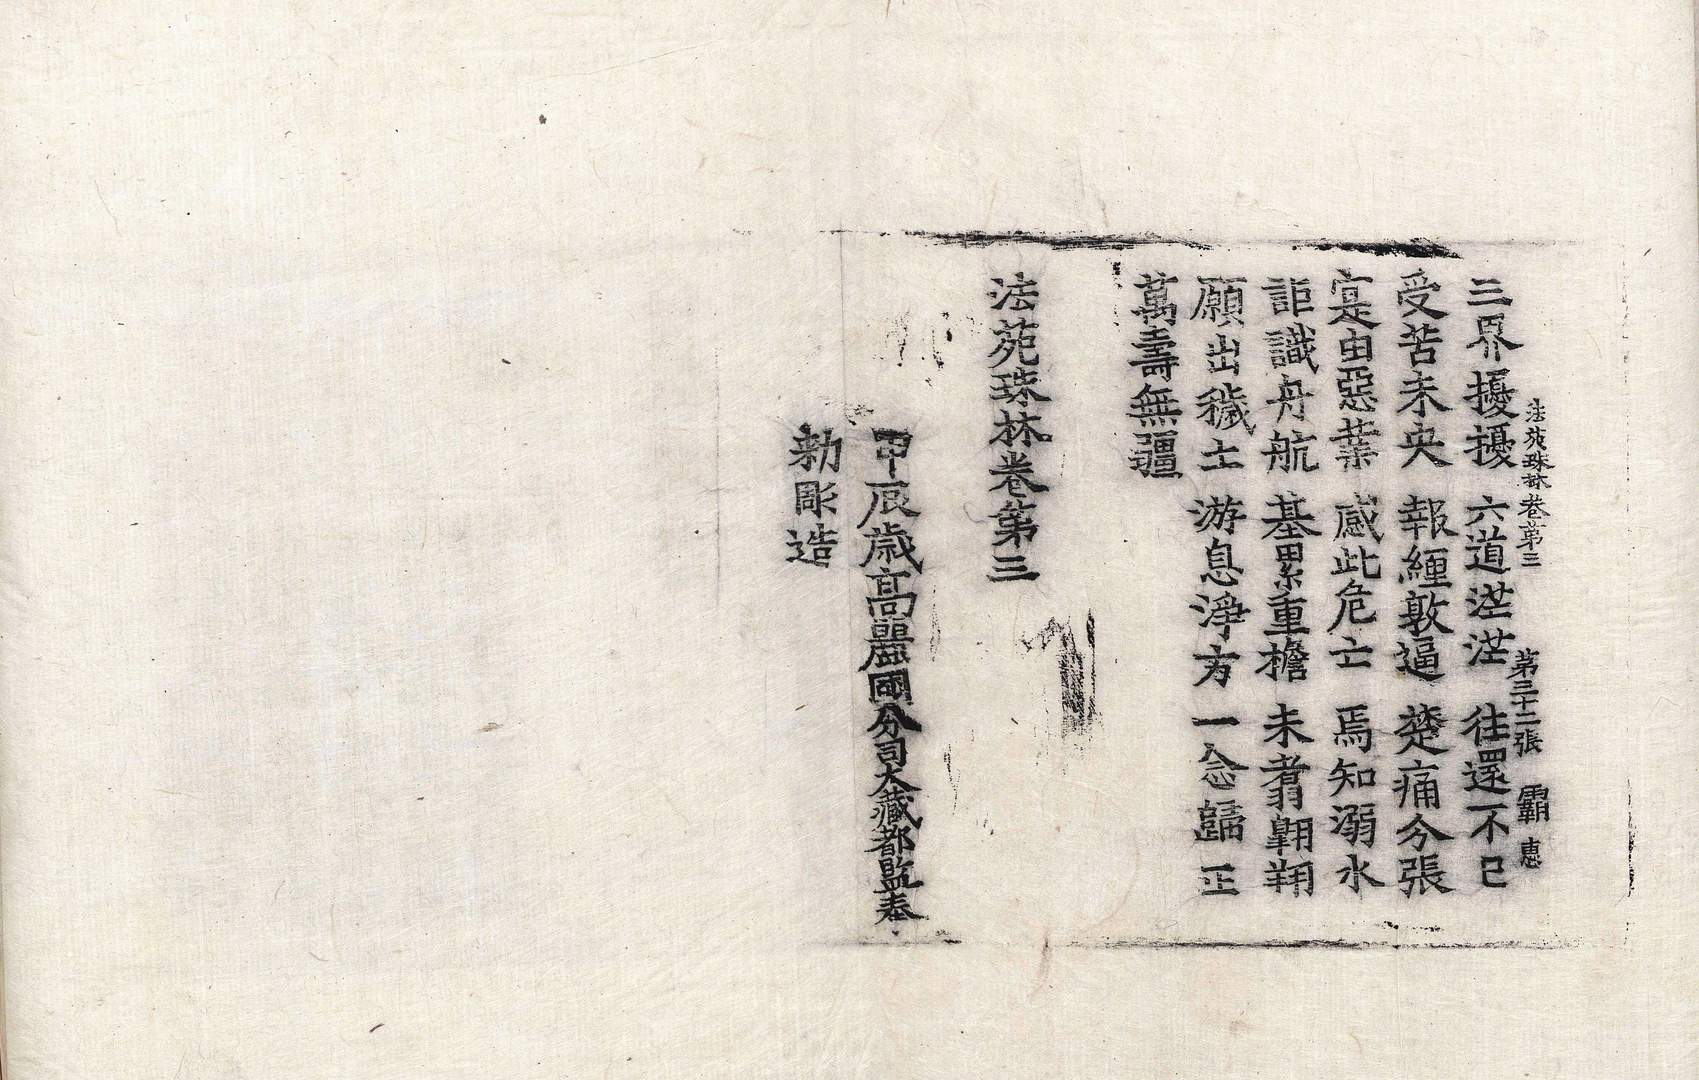 法苑珠林卷第三　第三十二張　霸　惠
三界擾擾　六道茫茫　往還不已
受苦未央　報纏敦逼　楚痛分張
寔由惡業　感此危亡　焉知溺水
詎識舟航　基累重檐　未翥翺翔
願出穢土　游息淨方　一念歸正
萬壽無疆
法苑珠林卷第三
甲辰歲高麗國分司大藏都監奉
勑彫造